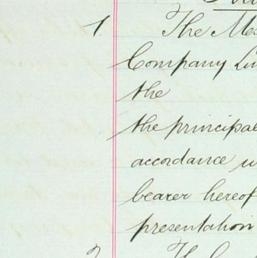 1 The
Company
the
the principal
accordance
bearer hereof
presentation